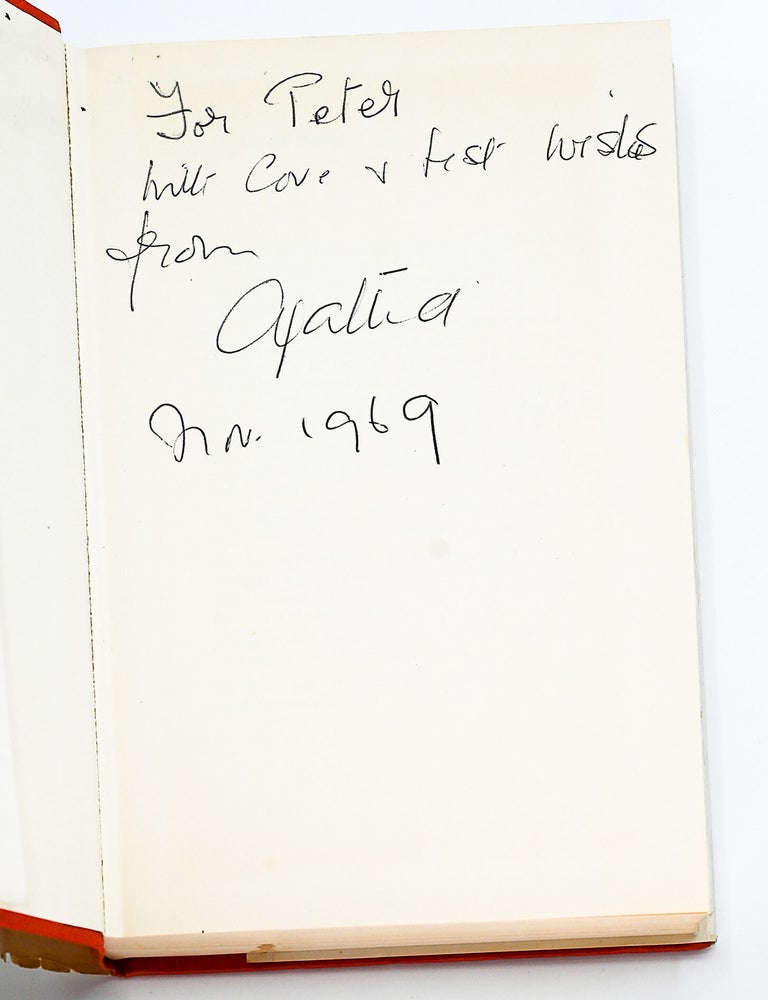 For Peter
with love & best wishes
from
Agatha
Nov. 1969